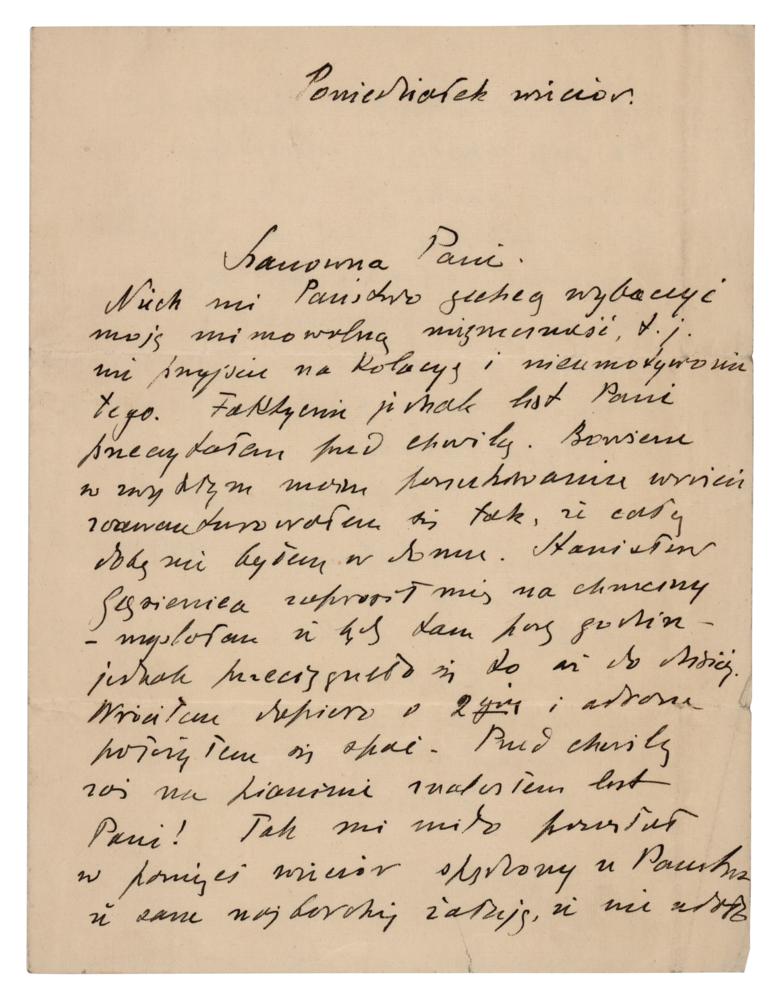 Poniedziałek wieczór.
Szanowna Pani.
Niech mi Państwo zechcą wybaczyć
moją mimowolną niegrzeczność, t. j.
nie przyjście na kolację i nieumotywowanie
tego. Faktycznie jednak list Pani
przeczytałem przed chwilą. Bowiem
w zwykłym moim poszukiwaniu wrażeń
rozawanturowałem się tak, że całą
dobę nie byłem w domu. Stanisław
Gąsienica zaprosił mię na chrzciny
– myślałem że będę tam parę godzin –
jednak przeciągnęło się to aż do dzisiaj.
Wróciłem dopiero o 2 i zaraz
położyłem się spać – Przed chwilą
zaś na pianinie znalazłem list
Pani! Tak mi miło pozostał
w pamięci wieczór spędzony u Państwa
że sam najbardziej żałuję, że nie